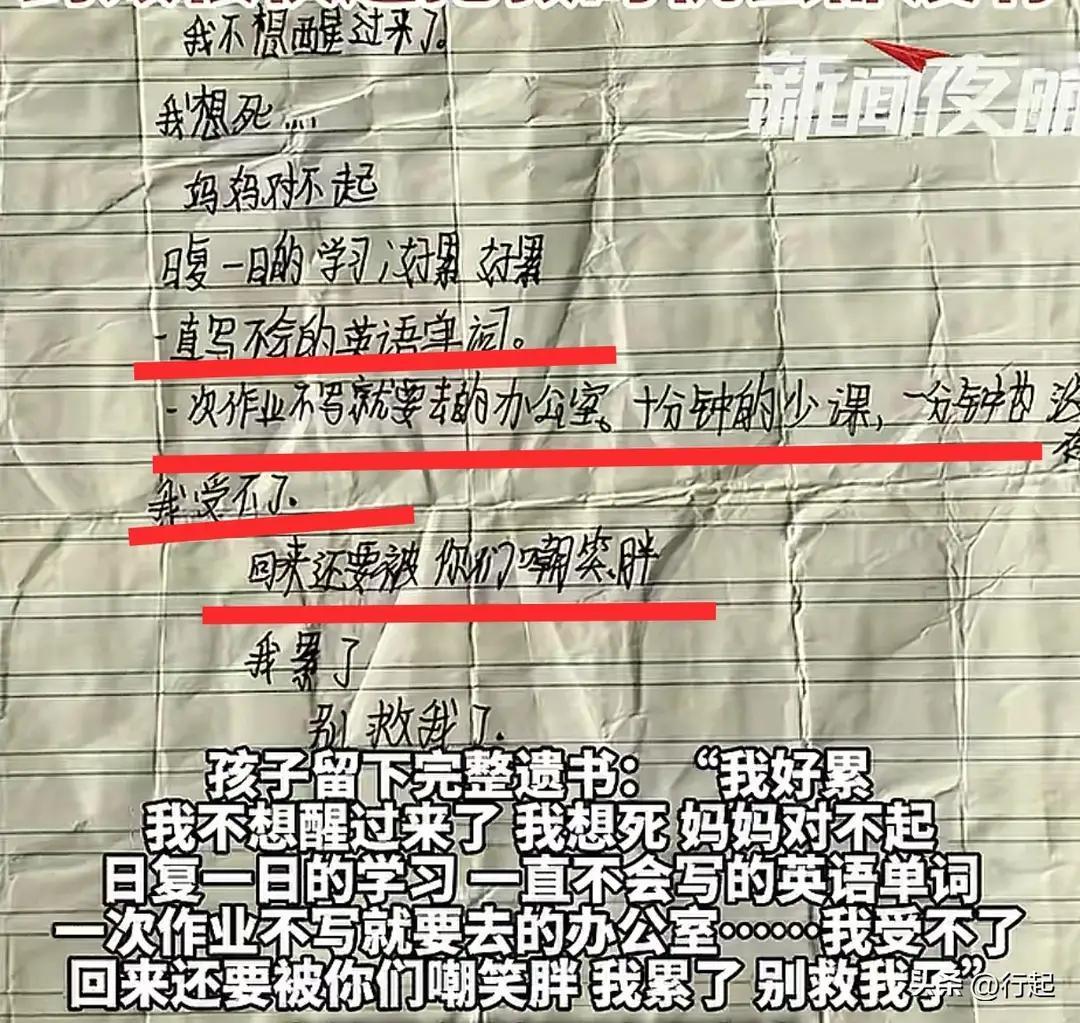 我不想醒过来了。
新闻夜航
我想死....
妈妈对不起
日复一日的学习，好累 好累
一直写不会的英语单词。
一次作业不写就要去的办公室。十分钟的少课，一分钟
我受不了
回来还要被你们嘲笑胖
我累了
别救我了.
孩子留下完整遗书：“我好累
我不想醒过来了 我想死 妈妈对不起
日复一日的学习 一直不会写的英语单词
一次作业不写就要去的办公室……我受不了
回来还要被你们嘲笑胖 我累了 别救我了”
头条 @行起